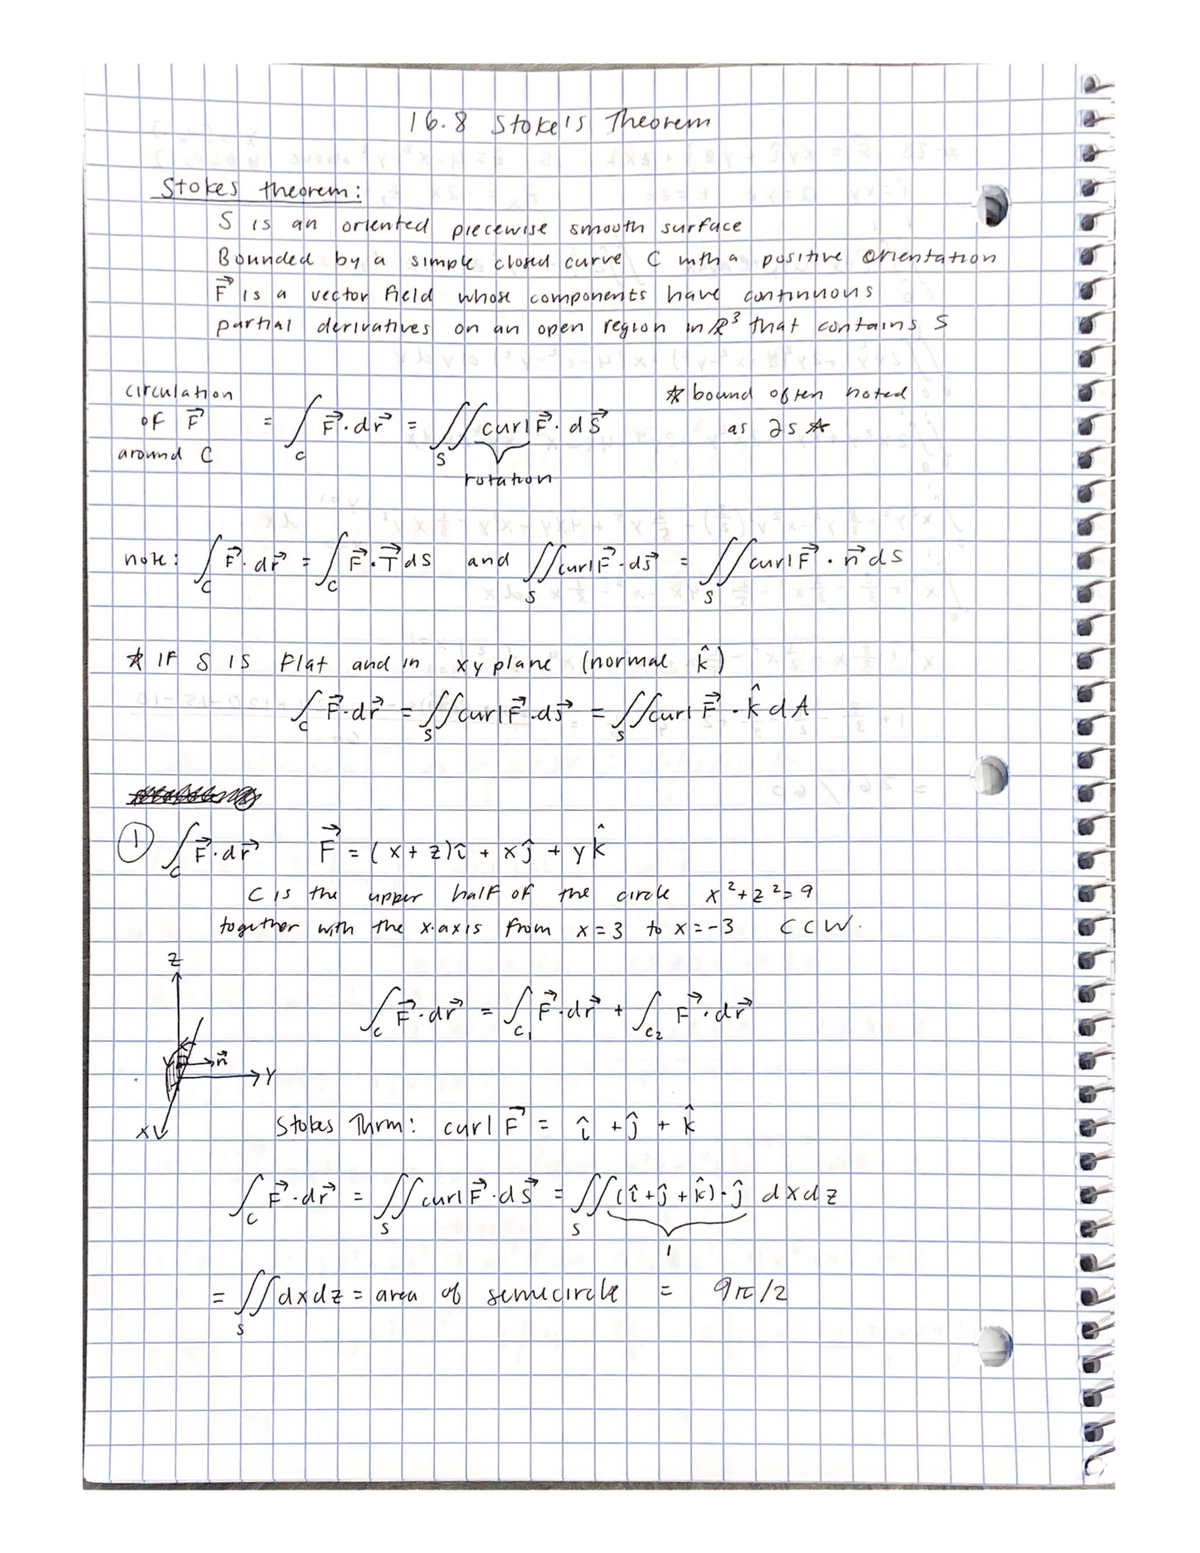 16.8 Stoke's Theorem
Stokes theorem:
S is an oriented piecewise smooth surface
Bounded by a simple closed curve C with a positive orientation
F⃗ is a vector field whose components have continuous
partial derivatives on an open region in ℝ³ that contains S
circulation of F⃗ around C = ∫_C F⃗·dr⃗ = ∬_S curl F⃗·dS⃗
rotation
* bound often noted
as ∂s *
note: ∫_C F⃗·dr⃗ = ∫_C F⃗·T⃗ ds and ∬_S curl F⃗·ds⃗ = ∬_S curl F⃗·n⃗ ds
* IF S is Flat and in xy plane (normal k̂)
∫_C F⃗·dr⃗ = ∬_S curl F⃗·ds⃗ = ∬_S curl F⃗·k̂ dA
① ∫_C F⃗·dr⃗ F⃗ = (x+z)î + xĵ + yk̂
C is the upper half of the circle x²+z²=9
together with the x-axis from x=3 to x=-3 CCW.
z
∫_C F⃗·dr⃗ = ∫_C₁ F⃗·dr⃗ + ∫_C₂ F⃗·dr⃗
n⃗
Y
X
Stokes Thrm: curl F⃗ = î + ĵ + k̂
∫_C F⃗·dr⃗ = ∬_S curl F⃗·dS⃗ = ∬_S (î+ĵ+k̂)·ĵ dxdz
1
= ∬_S dxdz = area of semicircle = 9π/2